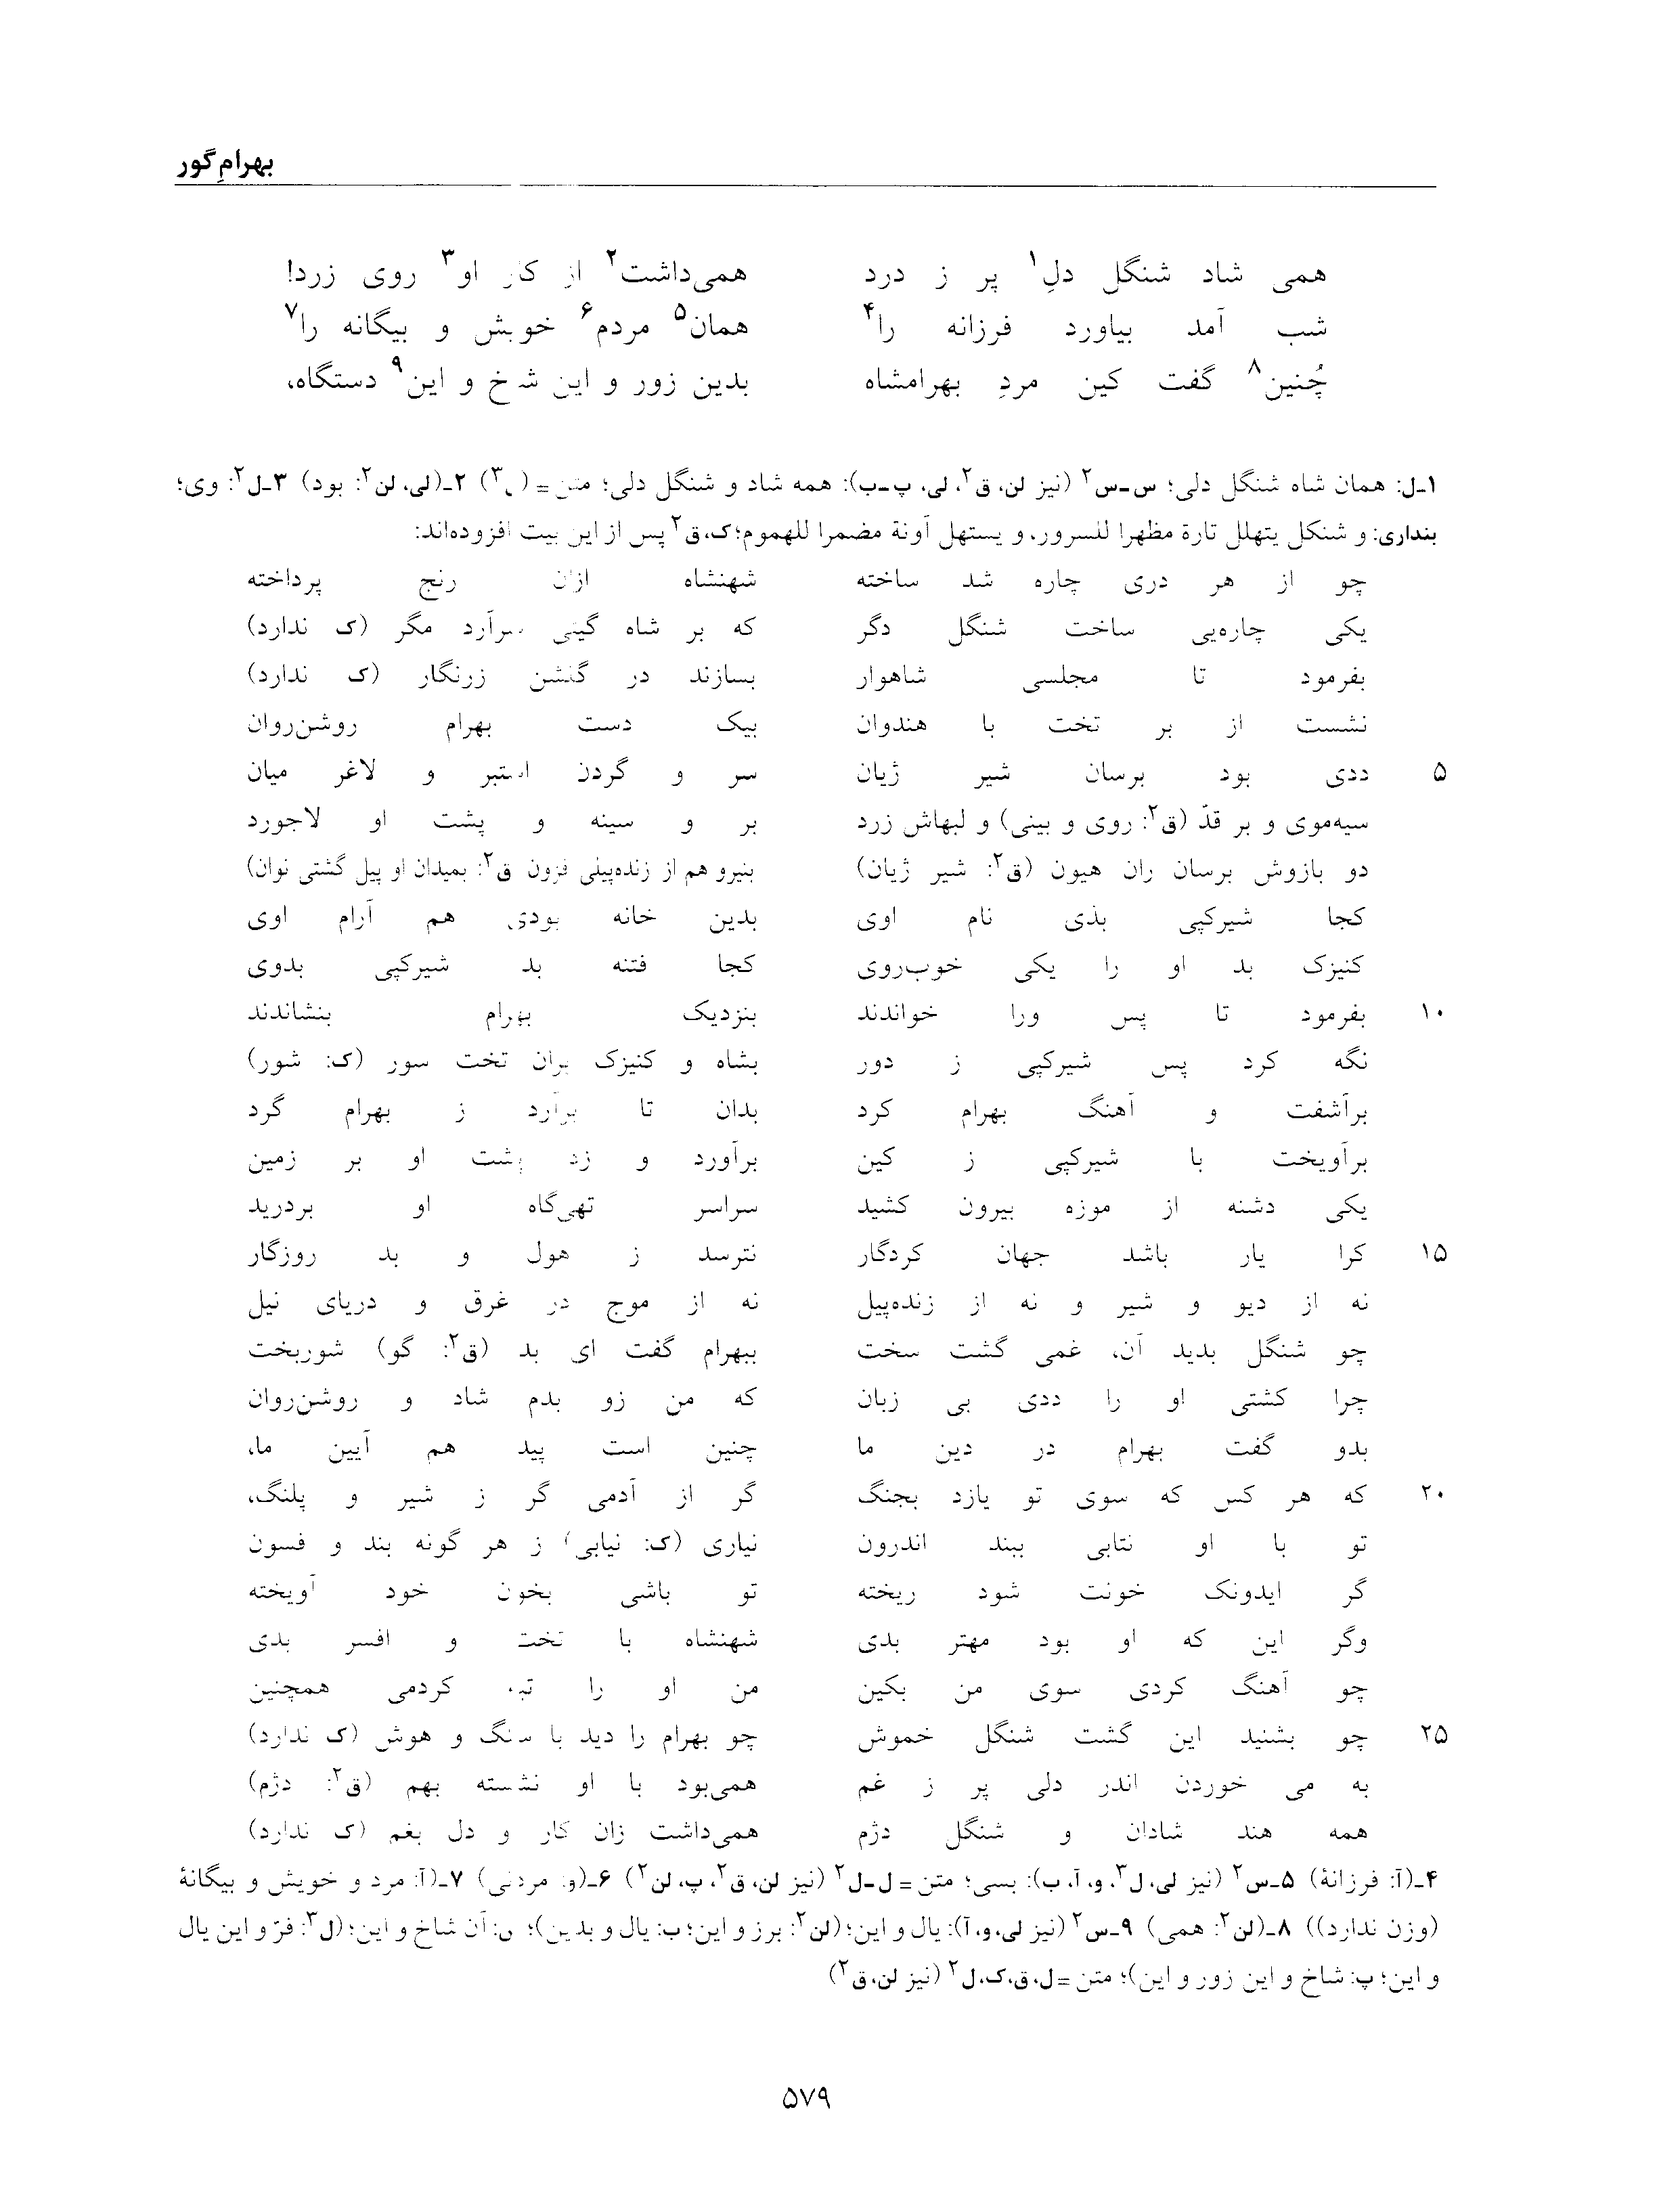 بهرامِ گور
همی شاد شنگل دلِ۱ پر ز درد همی‌داشت۲ از کار او۳ روی زرد!
شب آمد بیاورد فرزانه را۴ همان۵ مردم۶ خویش و بیگانه را۷
چُنین۸ گفت کین مردِ بهرامشاه بدین زور و این شاخ و این۹ دستگاه،
۱ـ ل: همان شاه شنگل دلی؛ س ـ س۲ (نیز لن، ق۲، لی، پ ـ ب): همه شاد و شنگل دلی؛ متن = (ل۳) ۲ـ (لی، لن۲: بود) ۳ـ ل۲: وی؛
بنداری: و شنکل یتهلل تارة مظهرا للسرور، و یستهل آونة مضمرا للهموم؛ ک، ق۲ پس از این بیت افزوده‌اند:
چو از هر دری چاره شد ساخته شهنشاه ازان رنج پرداخته
یکی چاره‌یی ساخت شنگل دگر که بر شاه گیتی سرآرد مگر (ک ندارد)
بفرمود تا مجلسی شاهوار بسازند در گلشن زرنگار (ک ندارد)
نشست از بر تخت با هندوان بیک دست بهرام روشن‌روان
۵ ددی بود برسان شیر ژیان سر و گردن استبر و لاغر میان
سیه‌موی و بر قدّ (ق۲: روی و بینی) و لبهاش زرد بر و سینه و پشت او لاجورد
دو بازوش برسان ران هیون (ق۲: شیر ژیان) بنیرو هم از زنده‌پیلی فزون ق۲: بمیدان او پیل گشتی نوان)
کجا شیرکپی بذی نام اوی بدین خانه بودی هم آرام اوی
کنیزک بد او را یکی خوب‌روی کجا فتنه بد شیرکپی بدوی
۱۰ بفرمود تا پس ورا خواندند بنزدیک بهرام بنشاندند
نگه کرد پس شیرکپی ز دور بشاه و کنیزک بران تخت سور (ک: شور)
برآشفت و آهنگ بهرام کرد بدان تا برآرد ز بهرام گرد
برآویخت با شیرکپی ز کین برآورد و زد پشت او بر زمین
یکی دشنه از موزه بیرون کشید سراسر تهی‌گاه او بردرید
۱۵ کرا یار باشد جهان کردگار نترسد ز هول و بد روزگار
نه از دیو و شیر و نه از زنده‌پیل نه از موج در غرق و دریای نیل
چو شنگل بدید آن، غمی گشت سخت ببهرام گفت ای بد (ق۲: گو) شوربخت
چرا کشتی او را ددی بی زبان که من زو بدم شاد و روشن‌روان
بدو گفت بهرام در دین ما چنین است پید هم آیین ما،
۲۰ که هر کس که سوی تو یازد بجنگ گر از آدمی گر ز شیر و پلنگ،
تو با او نتابی ببند اندرون نیاری (ک: نیابی) ز هر گونه بند و فسون
گر ایدونک خونت شود ریخته تو باشی بخون خود آویخته
وگر این که او بود مهتر بدی شهنشاه با تخت و افسر بدی
چو آهنگ کردی سوی من بکین من او را تبه کردمی همچنین
۲۵ چو بشنید این گشت شنگل خموش چو بهرام را دید با سنگ و هوش (ک ندارد)
به می خوردن اندر دلی پر ز غم همی‌بود با او نشسته بهم (ق۲: دژم)
همه هند شادان و شنگل دژم همی‌داشت زان کار و دل بغم (ک ندارد)
۴ـ (آ: فرزانهٔ) ۵ـ س۲ (نیز لی، ل۳، و، آ، ب): بسی؛ متن = ل ـ ل۲ (نیز لن، ق۲، پ، لن۲) ۶ـ (و: مردمی) ۷ـ (آ: مرد و خویش و بیگانهٔ
(وزن ندارد)) ۸ـ (لن۲: همی) ۹ـ س۲ (نیز لی، و، آ): یال و این؛ (لن۲: برز و این؛ ب: یال و بدین)؛ س: آن شاخ و این؛ (ل۳: فرّ و این یال
و این؛ پ: شاخ و این زور و این)؛ متن = ل، ق، ک، ل۲ (نیز لن، ق۲)
۵۷۹